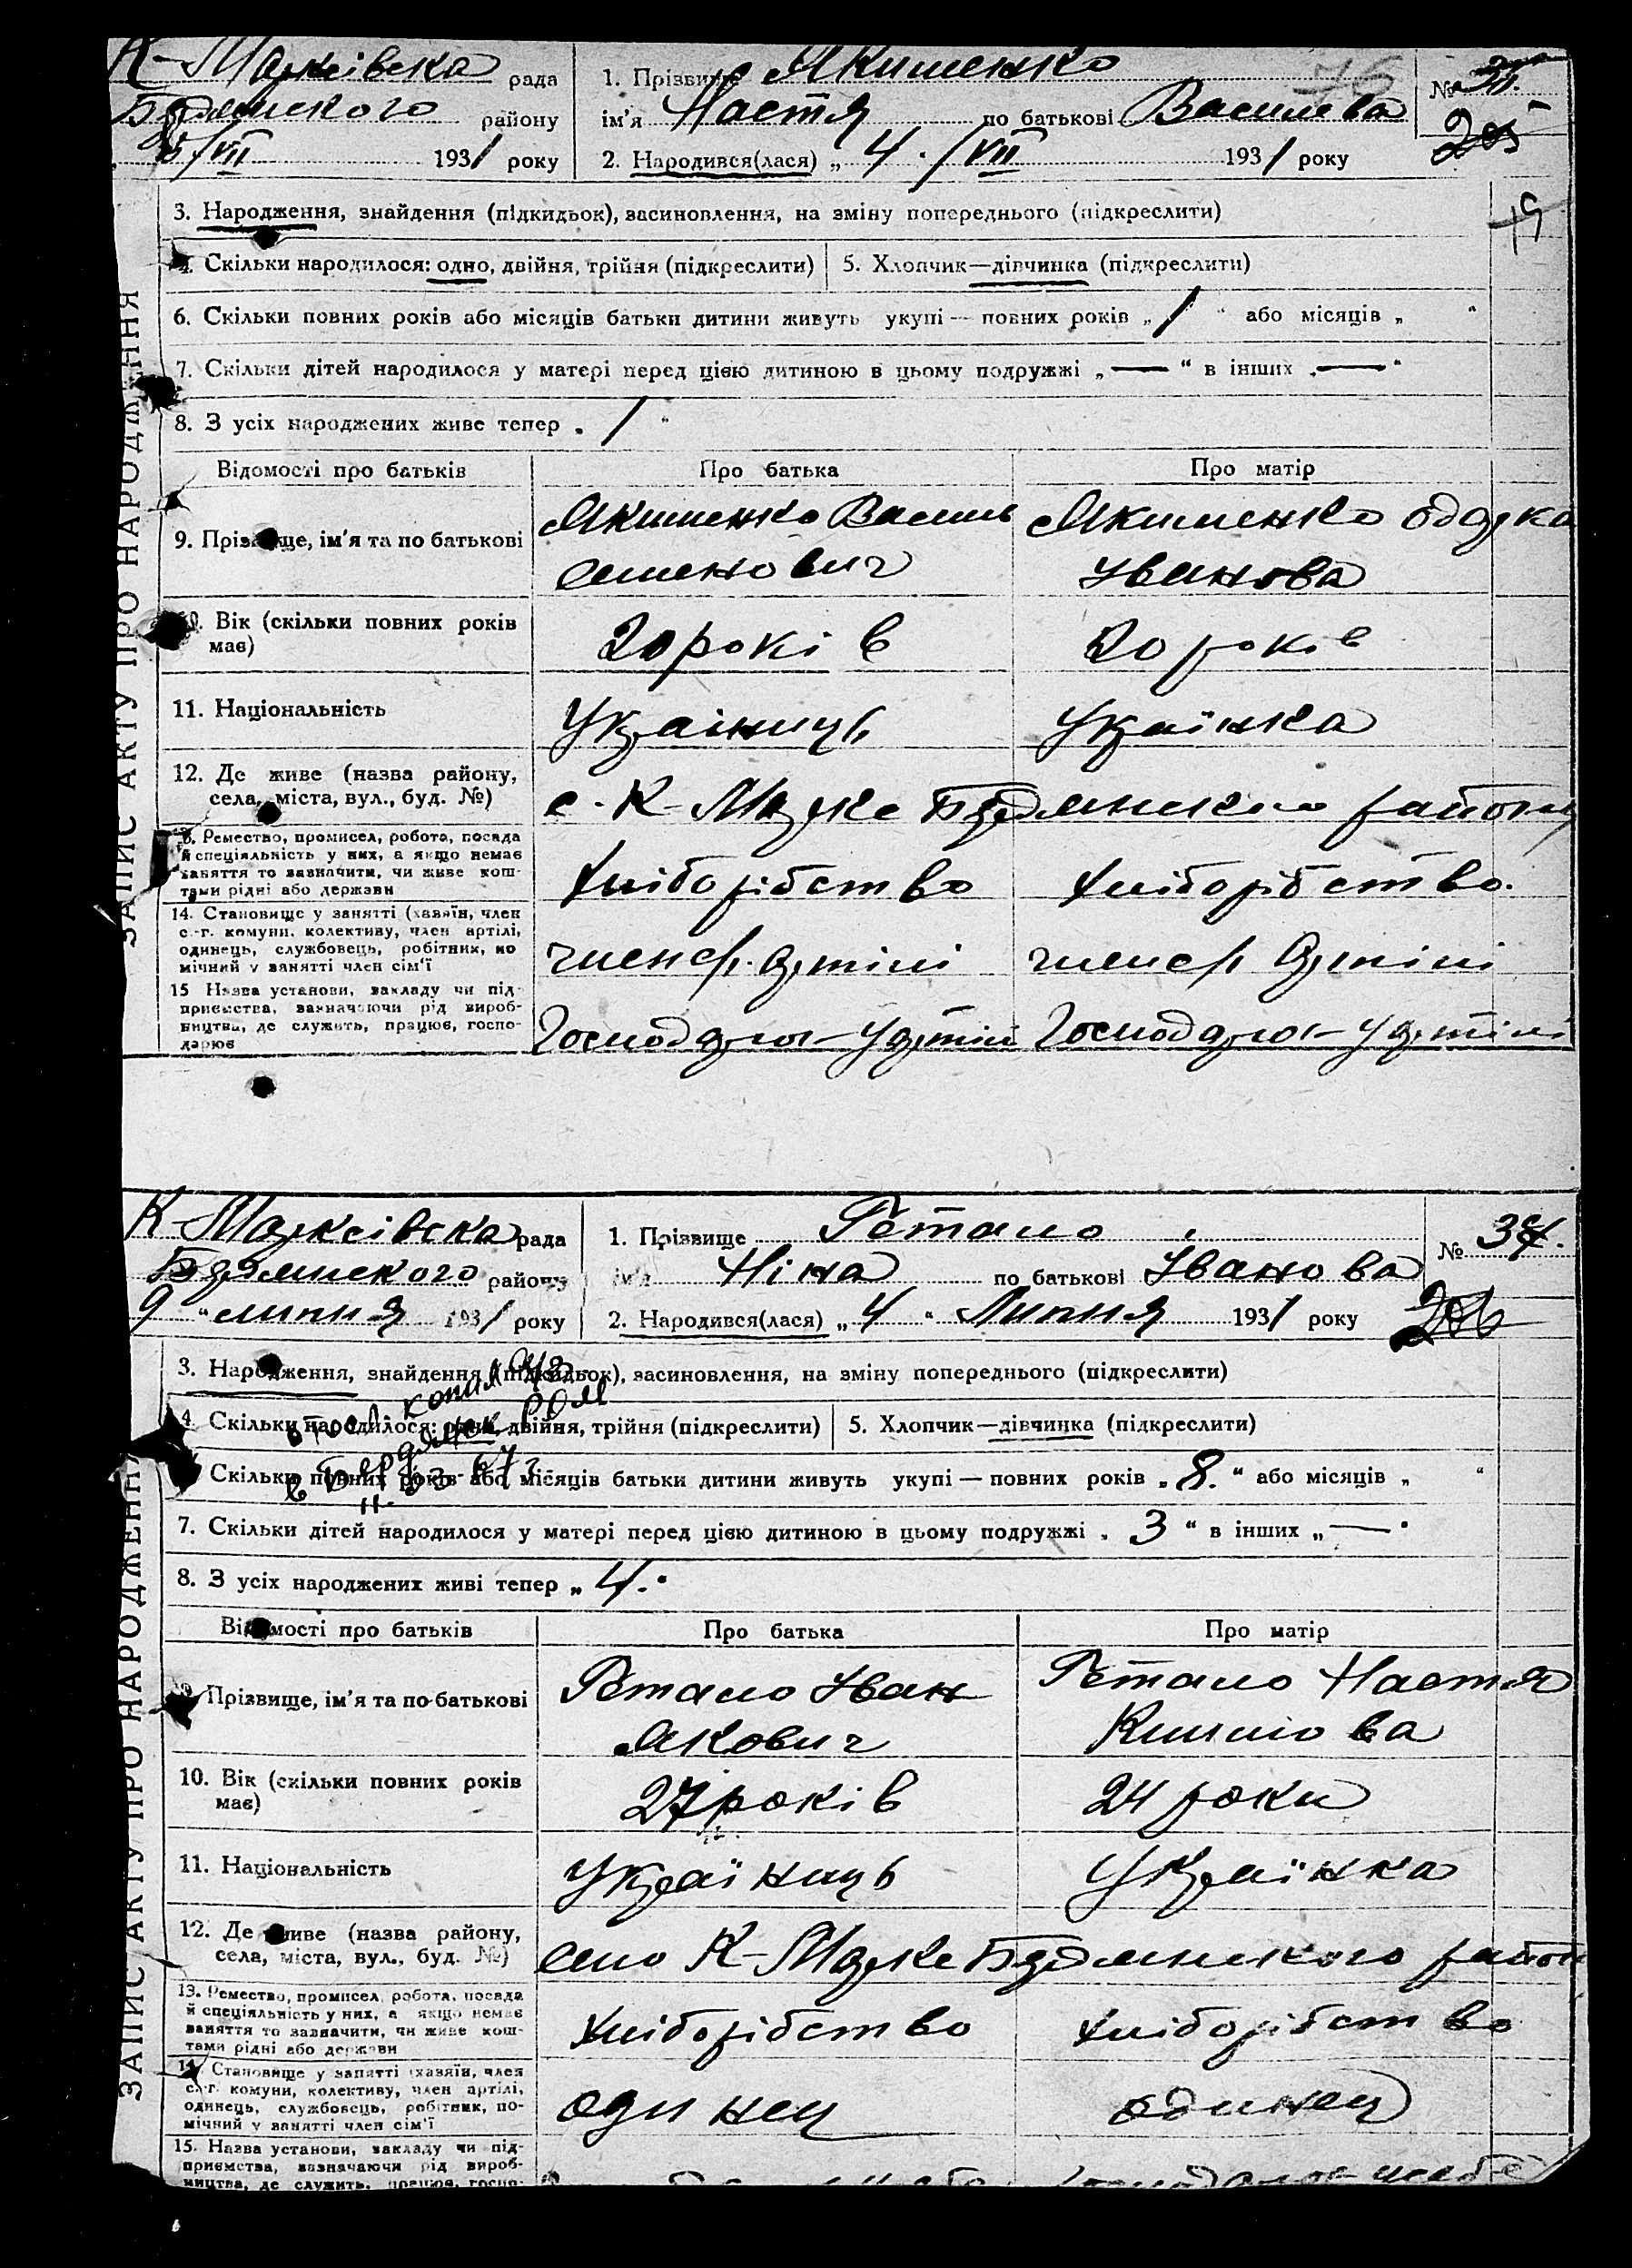 К-Марксівська рада
Бердянського району
8/VII 1931 року
1. Прізвище Якименко
ім'я Настя по батькові Василева
2. Народився(лася) „ 4 . / VII 1931 року
№
205
75
19
ЗАПИС АКТУ ПРО НАРОДЖЕННЯ
3. Народження, знайдення (підкидьок), засиновлення, на зміну попереднього (підкреслити)
4. Скільки народилося: одно, двійня, трійня (підкреслити) 5. Хлопчик—дівчинка (підкреслити)
6. Скільки повних років або місяців батьки дитини живуть укупі — повних років „ 1 “ або місяців „ “
7. Скільки дітей народилося у матері перед цією дитиною в цьому подружжі „ — “ в інших „ — “
8. З усіх народжених живе тепер „ 1 “
Відомості про батьків Про батька Про матір
9. Прізвище, ім'я та по батькові
Якименко Василь
Семенович
Якименко Одарка
Іванова
10. Вік (скільки повних років
має)
20 років
20 років
11. Національність
Українець
Українка
12. Де живе (назва району,
села, міста, вул., буд. №)
с. К-Маркс Бердянського району
13. Ремество, промисел, робота, посада
й спеціяльність у них, а якщо немає
заняття то зазначити, чи живе кош-
тами рідні або держави
Хліборібство
Хліборібство.
14. Становище у занятті (хазяїн, член
с.-г. комуни, колективу, член артілі,
одинець, службовець, робітник, по
мічний у занятті член сім'ї
член с/г. Артілі
член с/г Артілі
15 Назва установи, закладу чи під-
приємства, зазначаючи рід вироб-
ництва, де служить, працює, госпо-
дарює
Господарює у артілі
Господарює у артілі
К-Марксівська рада
Бердянського району
9 “ липня 1931 року
1. Прізвище Гетало
ім'я Ніна по батькові Іванова
2. Народився(лася) „ 4 “ Липня 1931 року
№
206
ЗАПИС АКТУ ПРО НАРОДЖЕННЯ
3. Народження, знайдення (підкидьок), засиновлення, на зміну попереднього (підкреслити)
4. Скільки народилося: одно, двійня, трійня (підкреслити) 5. Хлопчик—дівчинка (підкреслити)
Скільки повних років або місяців батьки дитини живуть укупі — повних років „ 8. “ або місяців „ “
7. Скільки дітей народилося у матері перед цією дитиною в цьому подружжі „ 3 “ в інших „ — “
8. З усіх народжених живі тепер „ 4. “
Відомості про батьків Про батька Про матір
9. Прізвище, ім'я та по-батькові
Гетало Іван
Якович
Гетало Настя
Кирилова
10. Вік (скільки повних років
має)
27 років
24 роки
11. Національність
Українець
Українка
12. Де живе (назва району,
села, міста, вул., буд. №)
село К-Маркс Бердянського район
13. Ремество, промисел, робота, посада
й спеціяльність у них, а якщо немає
заняття то зазначити, чи живе кош-
тами рідні або держави
Хліборібство
Хліборібство
14. Становище у занятті (хазяїн, член
с.-г. комуни, колективу, член артілі,
одинець, службовець, робітник, по-
мічний у занятті член сім'ї
одинец
одинец
15. Назва установи, закладу чи під-
приємства, зазначаючи рід вироб-
ництва, де служить, працює, госпо-